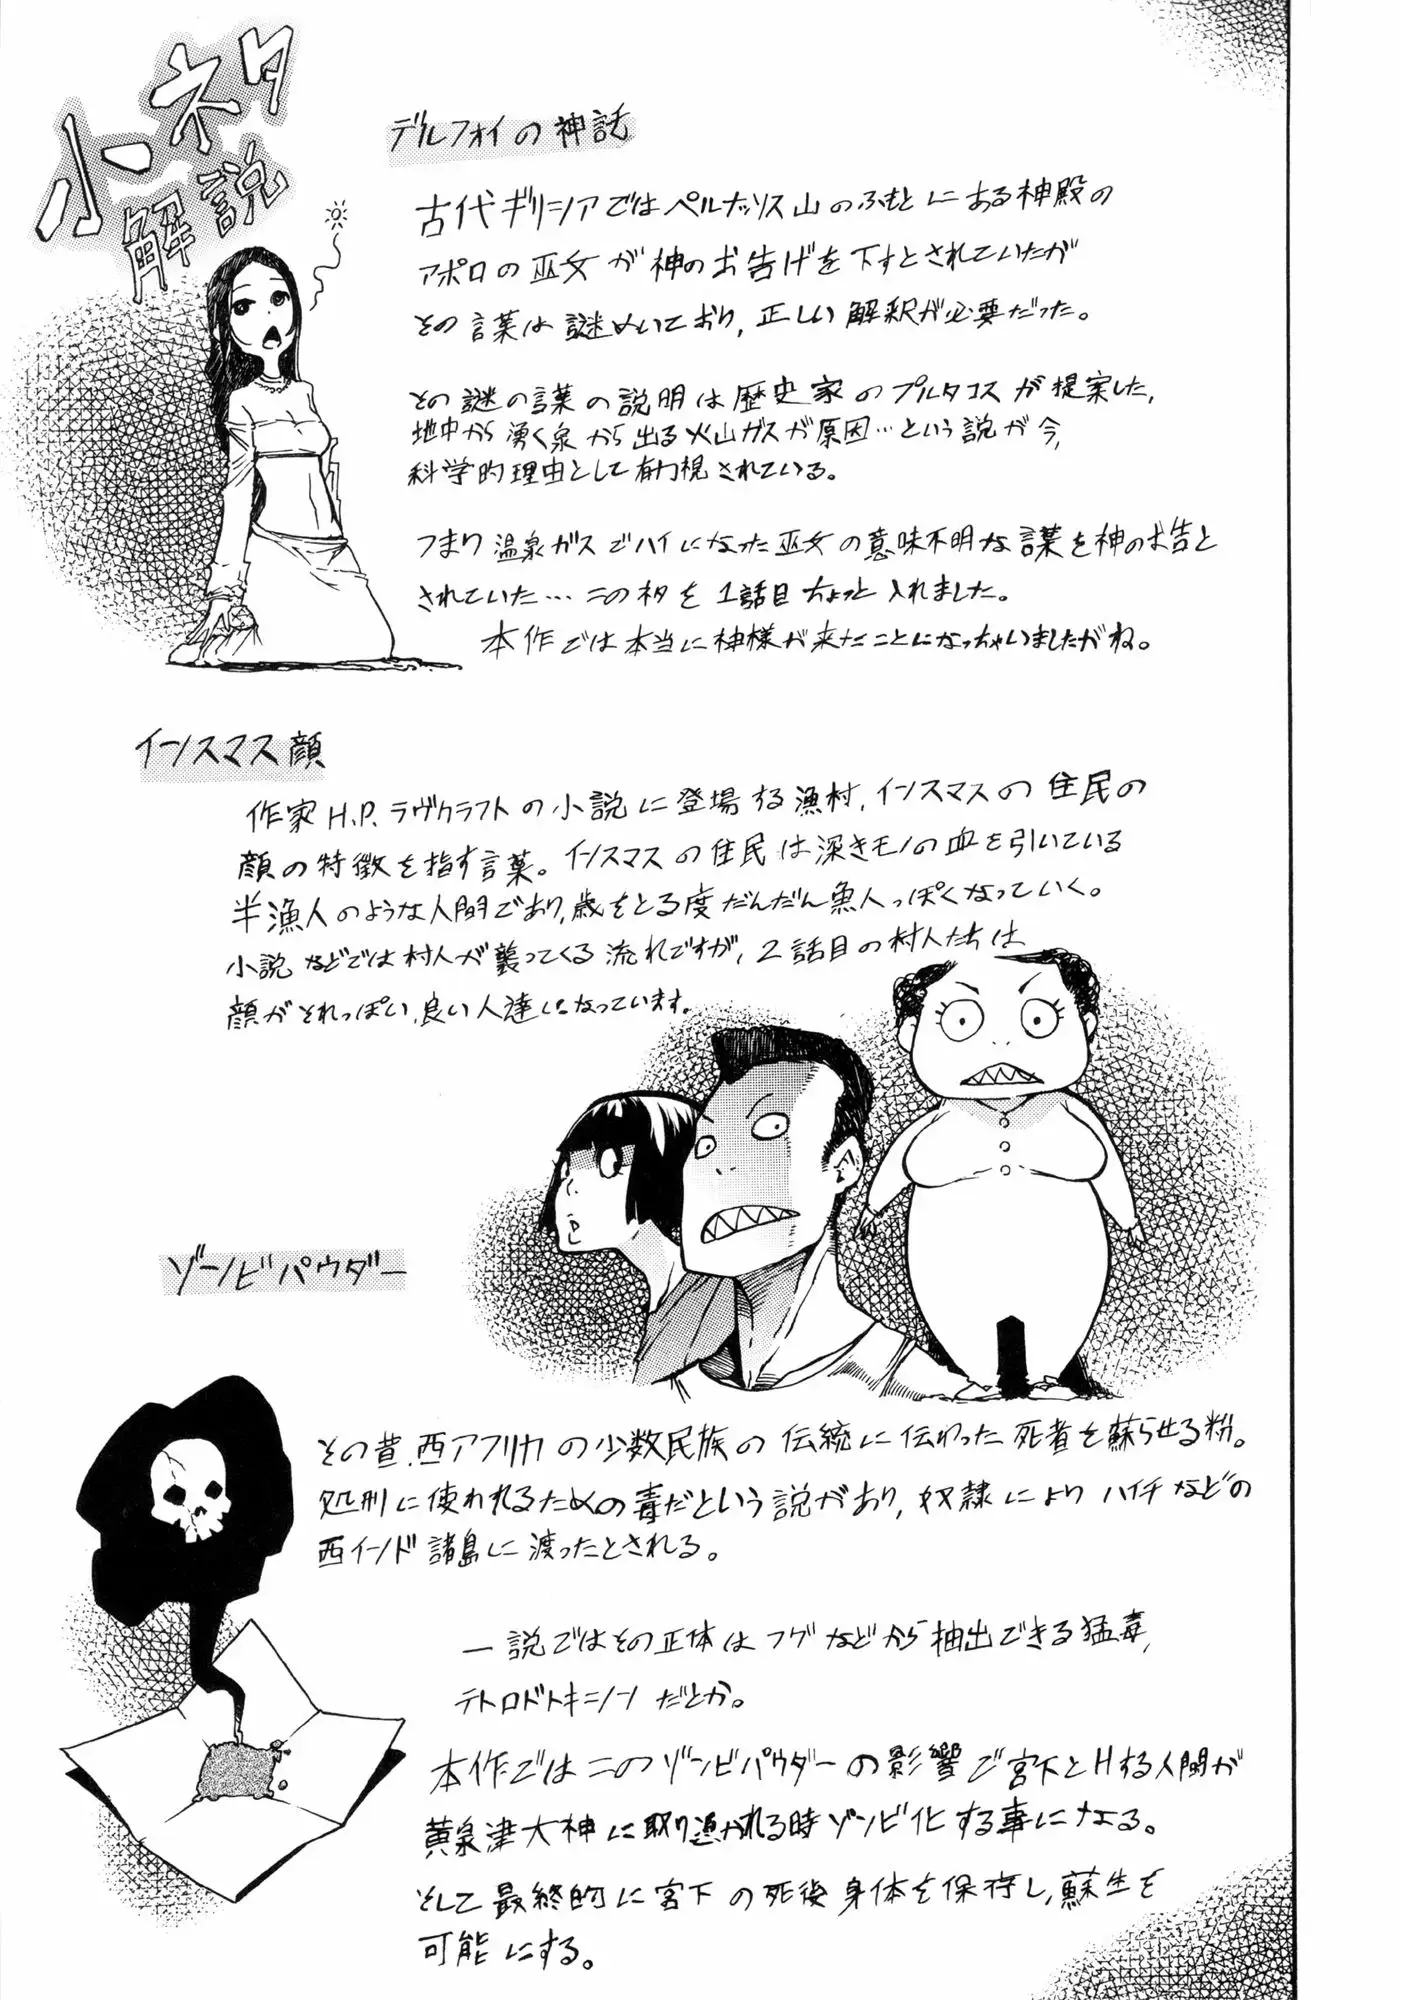 小ネタ
解説
デルフォイの神託
古代ギリシアではペルナッソス山のふもとにある神殿の
アポロの巫女が神のお告げを下すとされていたが
その言葉は謎めいており,正しい解釈が必要だった。
その謎の言葉の説明は歴史家のプルタコスが提案した,
地中から湧く泉から出る火山ガスが原因…という説が今,
科学的理由として有力視されている。
つまり温泉ガスでハイになった巫女の意味不明な言葉を神のお告と
されていた…このネタを1話目ちょっと入れました。
本作では本当に神様が来たことになっちゃいましたがね。
インスマス顔
作家H.P.ラヴクラフトの小説に登場する漁村,インスマスの住民の
顔の特徴を指す言葉。インスマスの住民は深きモノの血を引いている
半漁人のような人間であり,歳をとる度だんだん魚人っぽくなっていく。
小説などでは村人が襲ってくる流れですが,2話目の村人たちは
顔がそれっぽい,良い人達になっています。
ゾーンビパウダー
その昔,西アフリカの少数民族の伝統に伝わった死者を蘇らせる粉。
処刑に使われるための毒だという説があり,奴隷によりハイチなどの
西インド諸島に渡ったとされる。
一説ではその正体はフグなどから抽出できる猛毒,
テトロドトキシンだとか。
本作ではこのゾーンビパウダーの影響で宮下とHする人間が
黄泉津大神に取り憑かれる時ゾンビ化する事になる。
そして最終的に宮下の死後身体を保存し,蘇生を
可能にする。